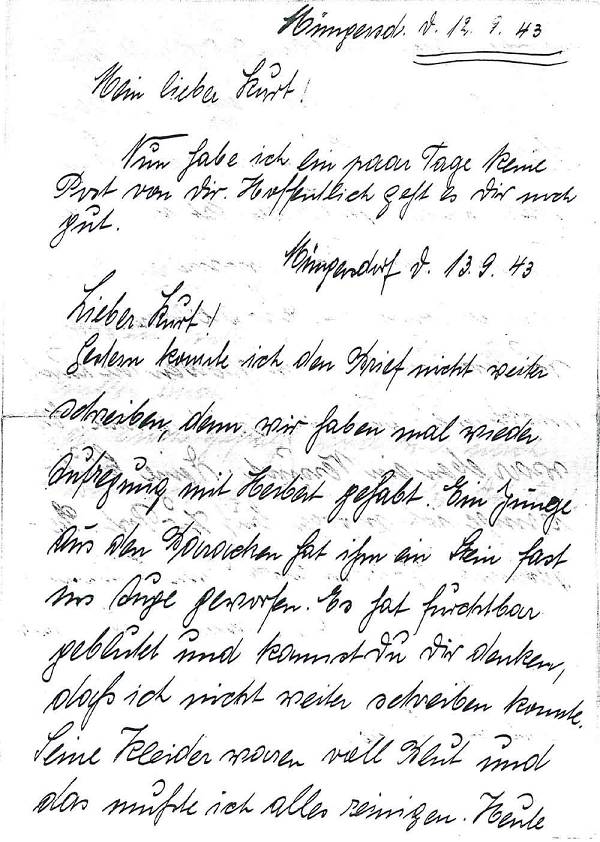 Müngersd. d. 12. 9. 43
Mein lieber Kurt!
Nun habe ich ein paar Tage keine
Post von Dir. Hoffentlich geht es Dir noch
gut.
Müngersdorf d. 13. 9. 43
Lieber Kurt!
Gestern konnte ich den Brief nicht weiter
schreiben, denn wir haben mal wieder
Aufregung mit Herbert gehabt. Ein Junge
aus den Baracken hat ihm ein Stein fast
ins Auge geworfen. Es hat furchtbar
geblutet und kannst Du Dir denken,
daß ich nicht weiter schreiben konnte.
Seine Kleider waren voll Blut und
das mußte ich alles reinigen. Heute